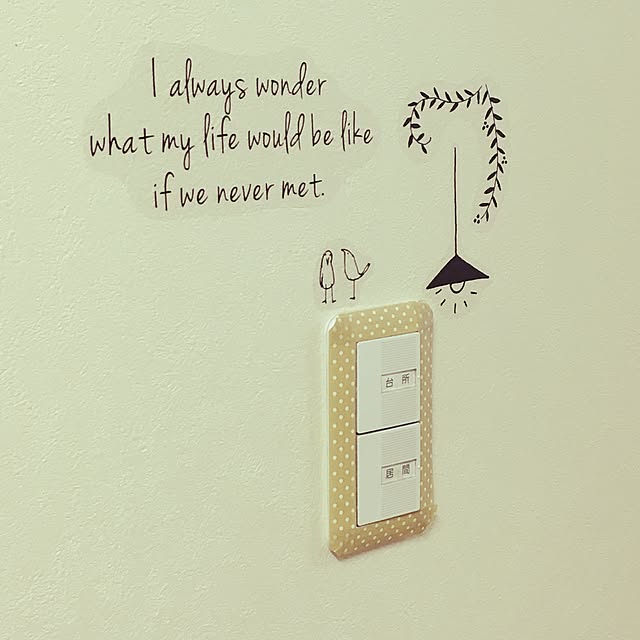 I always wonder
what my life would be like
if we never met.
台所
居間